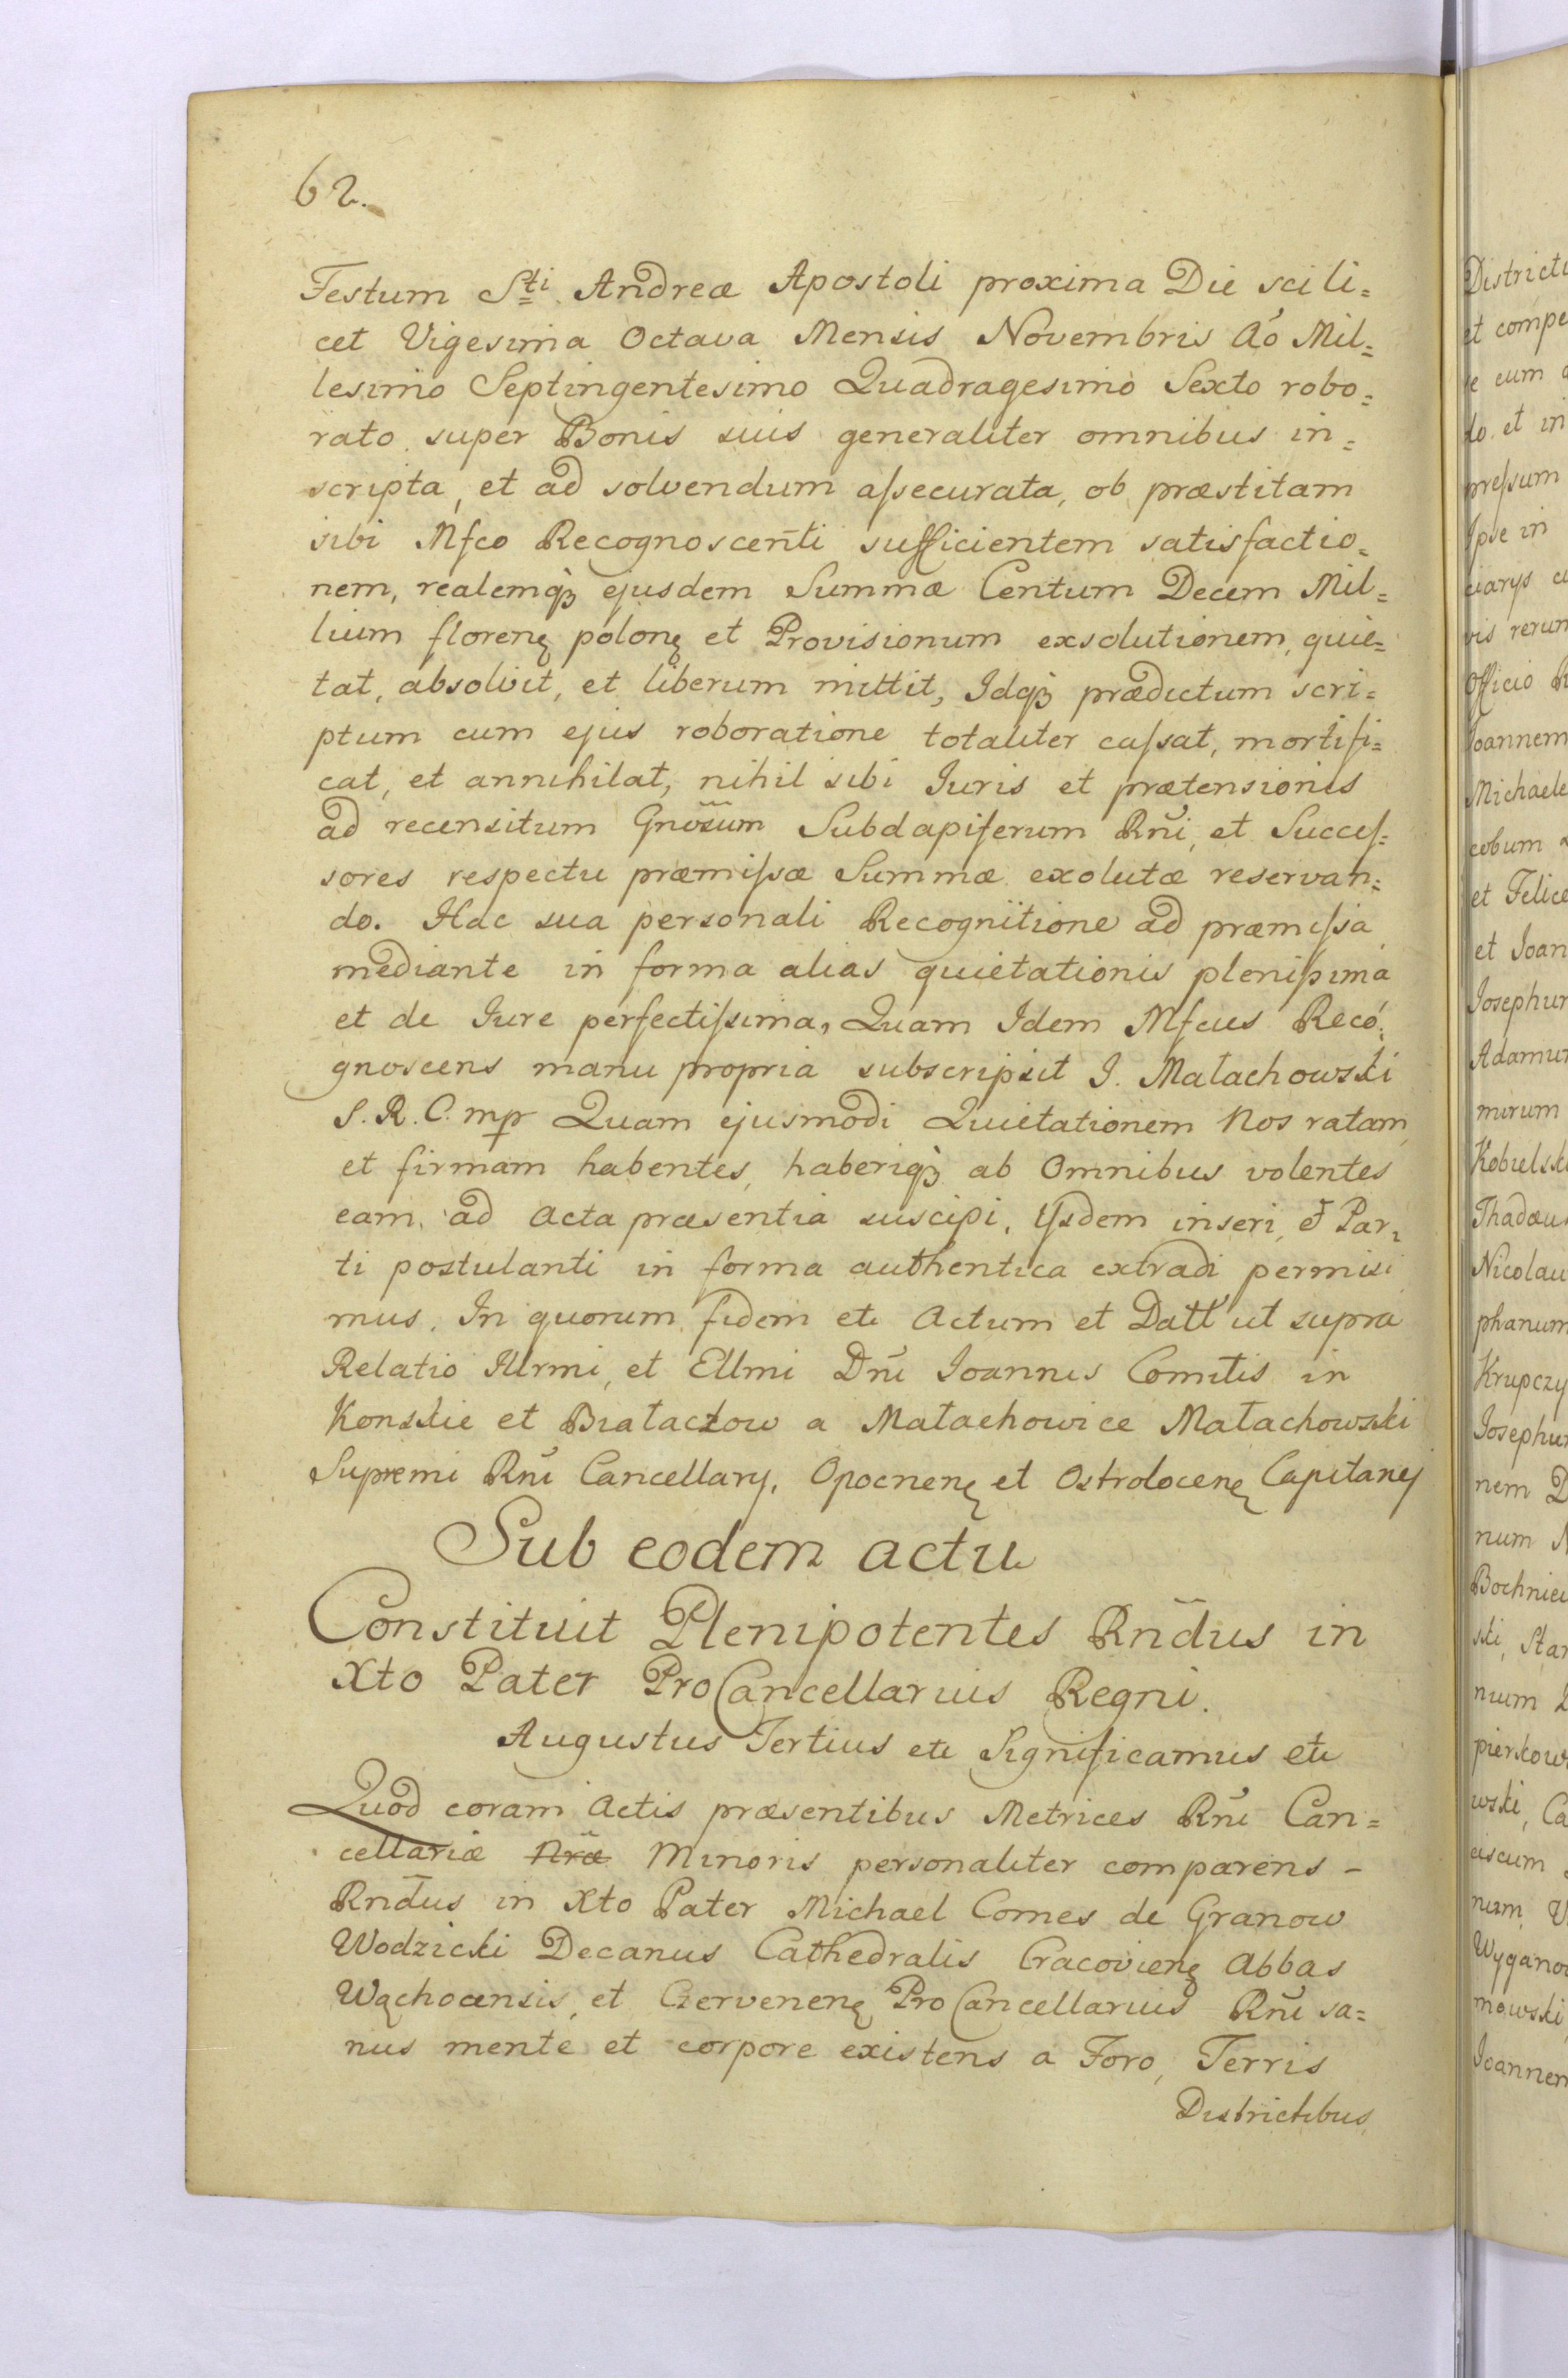 62.
Festum Sti Andreæ Apostoli proxima Die scili=
cet Vigesima Octava Mensis Novembris Aõ Mil=
lesimo Septingentesimo Quadragesimo Sexto robo=
rato super Bonis suis generaliter omnibus in=
scripta, et ad solvendum aſsecurata, ob præstitam
sibi Mfco Recognoscen̄ti sufficientem satisfactio=
nem, realemqꝫ ejusdem Summæ Centum Decem Mil=
lium florenꝫ polonꝫ et Provisionum exsolutionem, quie=
tat, absolvit, et liberum mittit, Idqꝫ prædictum scri=
ptum cum ejus roboratione totaliter caſsat, mortifi=
cat, et annihilat, nihil sibi Juris et prætensionis
ad recensitum Gnõsum Subdapiferum Rñi, et Succeſ=
sores respectu præmiſsæ Summæ exolutæ reservan=
do. Hac sua personali Recognitione ad præmiſsa
mediante in forma alias quietationis pleniſsima
et de Jure perfectiſsima, Quam Idem Mfcus Reco=
gnoscens manu propria subscripsit J. Małachowski
S. R. C. mp Quam ejusmodi Quietationem Nos ratam
et firmam habentes, haberiqꝫ ab Omnibus volentes
eam, ad Acta præsentia suscipi, Ijsdem inseri, et Par=
ti postulanti in forma authentica extradi permisi
mus. In quorum fidem etc Actum et Datt ut supra
Relatio Illrmi, et Ellmi Dñi Joannis Comitis in
Konskie et Białaczow a Małachowice Małachowski
Supremi Rñi Cancellarij, Opocnenꝫ et Ostrolocenꝫ Capitanej
Sub eodem actu
Constituit Plenipotentes Rñdus in
Xto Pater ProCancellarius Regni.
Augustus Tertius etc Significamus etc
Quod coram Actis præsentibus Metrices Rñi Can=
cellariæ Nræ Minoris personaliter comparens -
Rñdus in Xto Pater Michael Comes de Granow
Wodzicki Decanus Cathedralis Cracovienꝫ Abbas
Wąchocensis, et Czervenenꝫ ProCancellarius Rñi sa=
nus mente et corpore existens a Foro, Terris
Districtibus